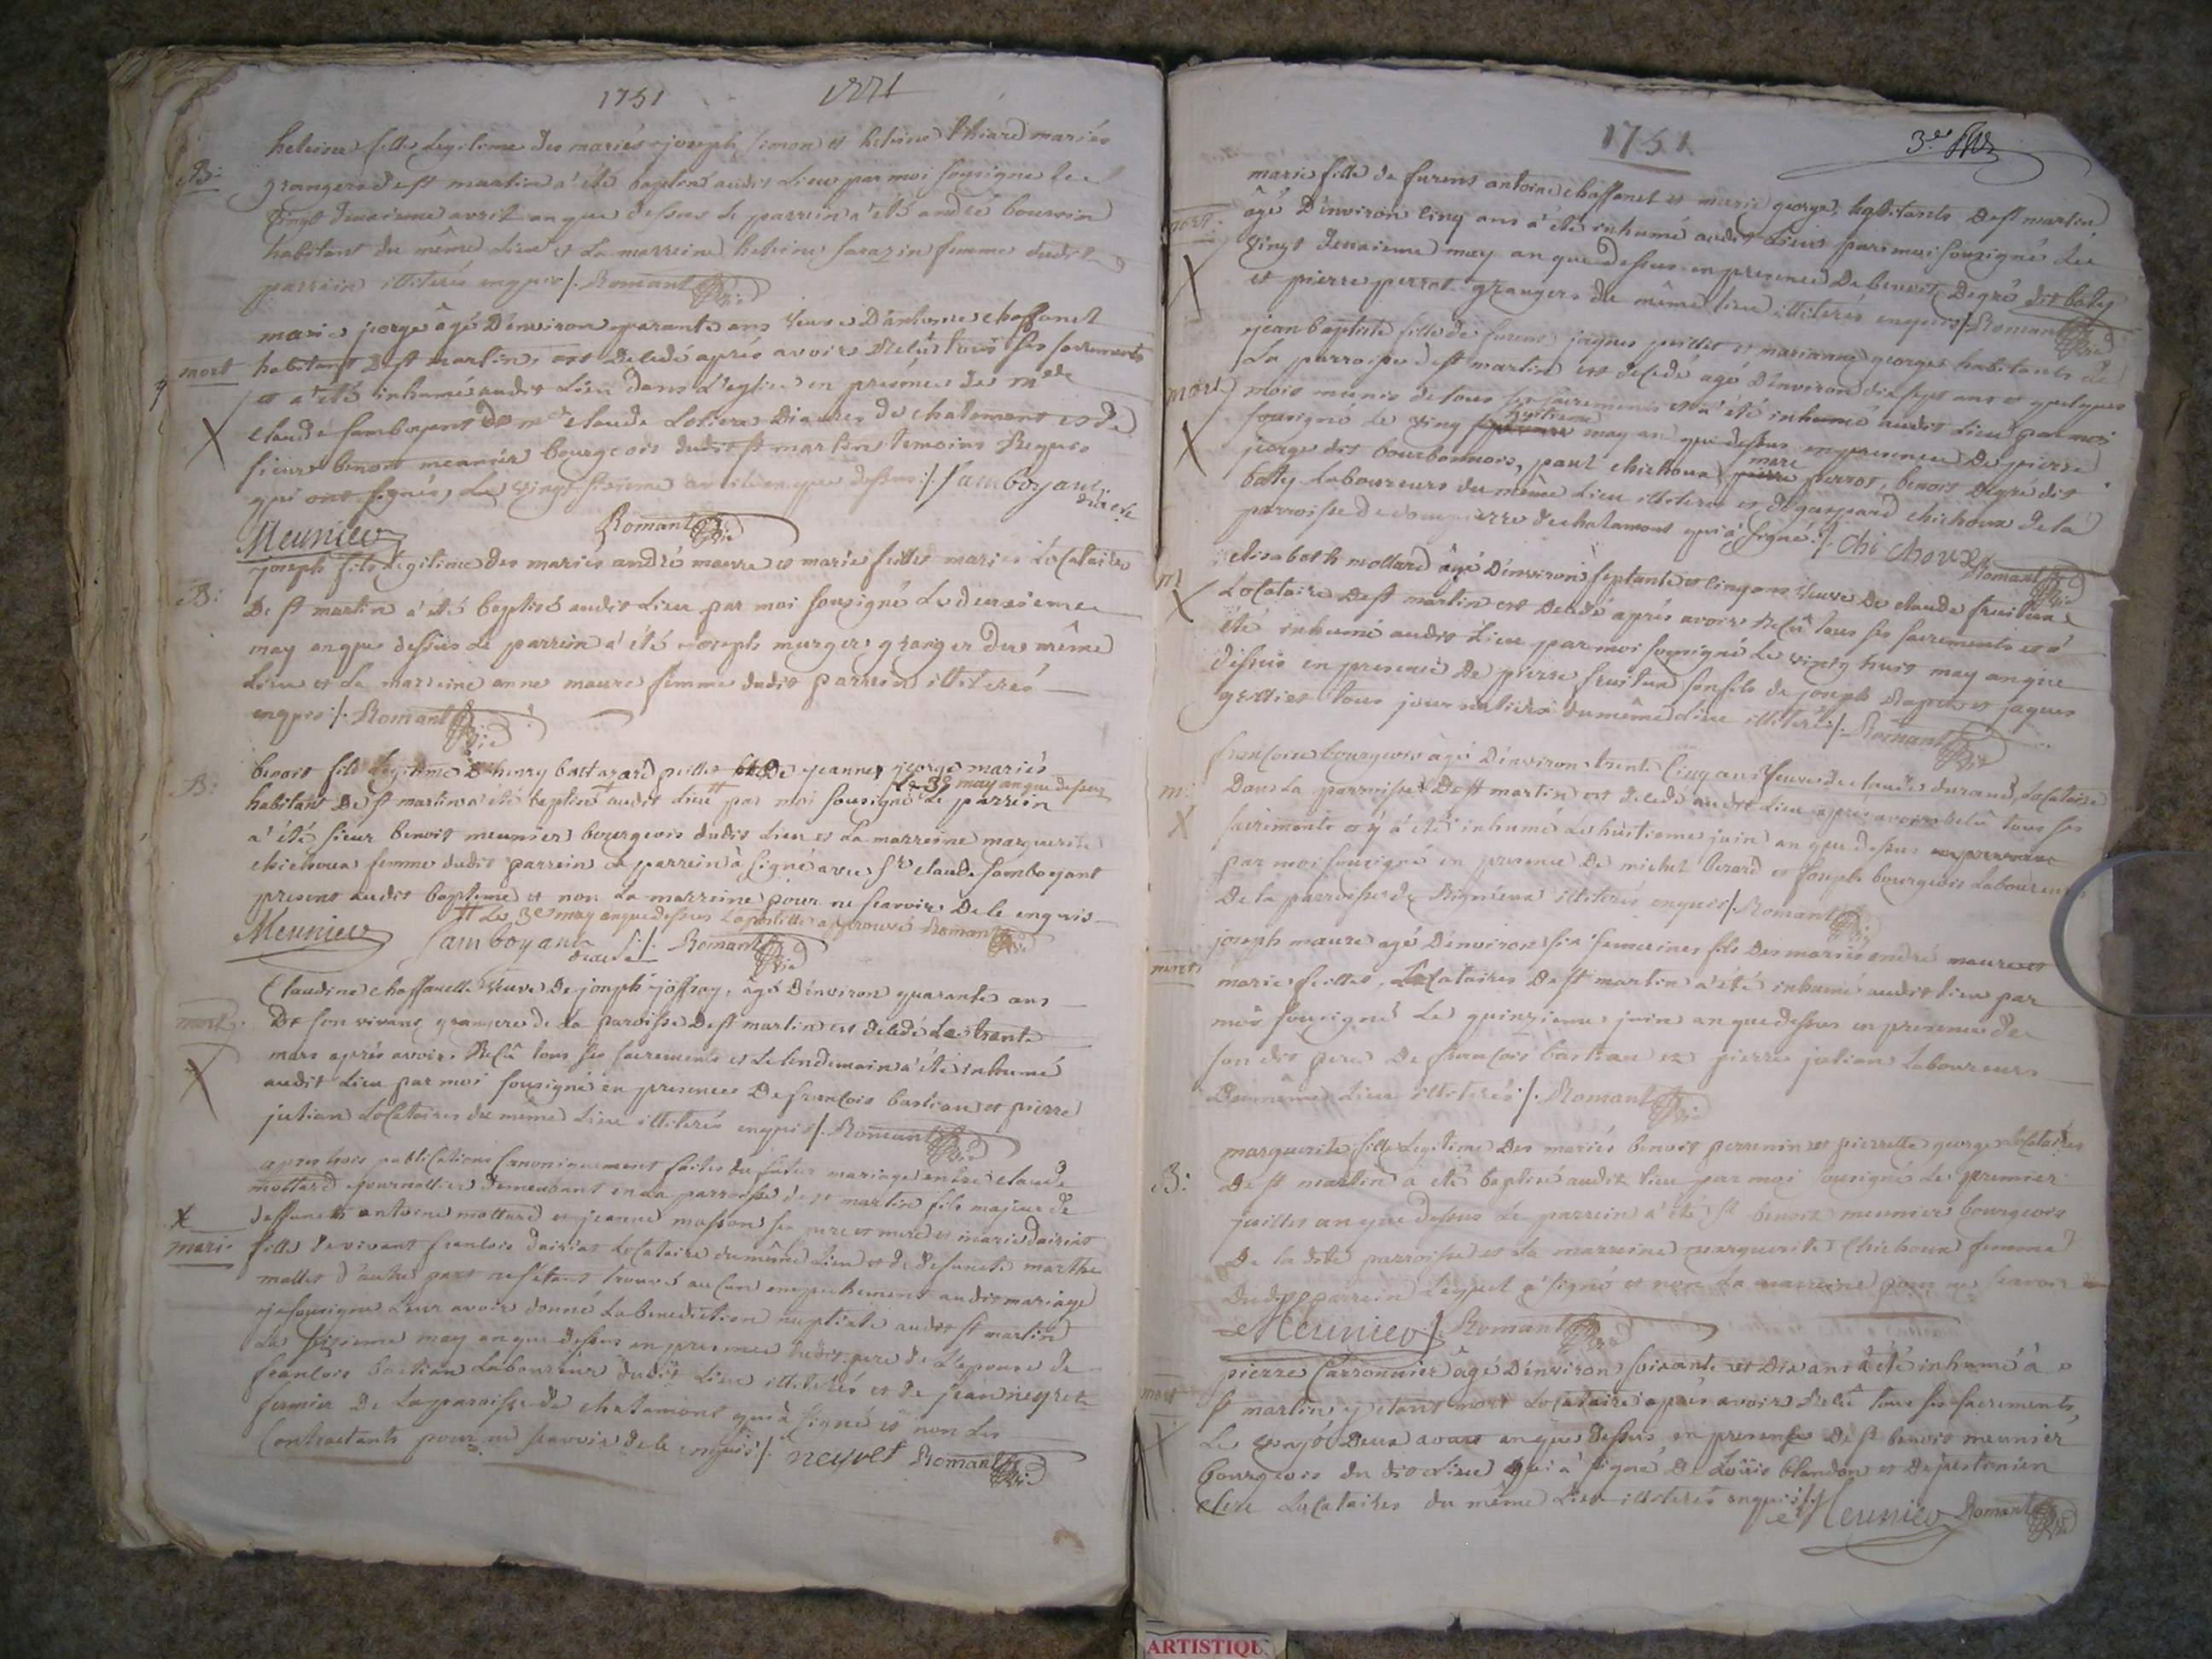 1751
heleine fille legitime des mariés joseph simon et heleine thiard mariés
B:
grangers de st martin a été baptisé audit lieu par moi sousigné le
vingt deuxieme avril an que dessus le parrein a été andré bouroin
habitant du même lieu et la marreine heleine sarazin femme dudit
parrein illiterés enquis /. Romant
marie jorge âgé d'environ quarante ans veuve d'antoine chaffanet
mort
habitant de st martin est decedé aprés avoir reçû tous ses sacrements
et a été inhumé audit lieu dans l'eglise en presence de
claude samboyant de claude diacres de chalamont et de
sieur benoit meunier bourgeois dudit st martin temoins requis
qui ont signés le vingt sixieme avril an que dessus /. samboyant
diacre
Meunier Romant
joseph fils legitime des mariés andré maure et marie feilles mariés locataires
B:
de st martin a été baptisé audit lieu par moi sousigné le deuxieme
may an que dessus le parrein a été joseph murger granger du même
lieu et la marreine anne maure femme dudit parrein illiterés
enquis /. Romant
benoit fils legitime d'henry baltazard et de jeanne george mariés
le 3e may an que dessus
B:
habitant de st martin a été baptisé audit lieu par moi sousigné le parrein
a été sieur benoit meunier bourgeois dudit lieu et la marreine marguerite
chichoux femme dudit parrein le parrein a signé avec sr claude samboyant
present audit baptême et non la marreine pour ne scavoir de le enquis
le 3e may an que dessus l'apostille approuvé Romant
Meunier samboyant diacre /. Romant
Claudine chaffanelle veuve de joseph joffray, âgé d'environ quarante ans
mort
de son vivant grangere de la paroisse de st martin est decedé le trente
mars aprés avoir reçû tous ses sacrements et le lendemain a été inhumé
audit lieu par moi sousigné en presence de françois bastian et pierre
julian locataires du même lieu illiterés enquis /. Romant
apres trois publications canoniquement faites du futur mariage entre claude
mottard journallier demeurant en la parroisse de st martin fils majeur de
deffunts antoine mottard et jeanne masson ses pere et mere et marie dairiat
mari
fille de vivant françois dairiat locataire du même lieu et de defuncte marthe
mallet d'autre part ne s'étant trouvé aucun empechement audit mariage
je sousigné leur avoir donné la benediction nuptiale audit st martin
le sixieme may an que dessus en presence dudit pere de l'epouse de
françois bastian laboureur dudit lieu illiterés et de jean neyret
fermier de la paroisse de chalamont qui a signé et non les
contractants pour ne scavoir de le enquis /. neyret Romant
1751
3e
marie fille de furent antoine chaffanet et marie george, habitants de st martin
mort
âgé d'environ cinq ans a été inhumé audit lieu par moi sousigné le
vingt deuxieme may an que dessus en presence de benoit degré dit baty
et pierre perrot grangers du même lieu illiterés enquis /. Romant
jean baptiste fils de furent jaques et marianne george habitants de
la parroisse de st martin est decedé âgé d'environ dix sept ans et quelques
mort
mois munis de tous ses sacrements et a été inhumé audit lieu par moi
huitieme
sousigné le ving may an que dessus en presence de pierre
jorge dit bourbonnois, paul chichoux, perrot, benoit degré dit
marc
baty laboureurs du même lieu illiterés et de gaspard chichoux de la
parroisse de dompierre de chalamont qui a signé /. chi choux
Romant
elisabeth mollard âgé d'environ septante et cinq ans veuve de claude fruitier
m
locataire de st martin est decedé aprés avoir reçû tous ses sacrements et a
été inhumé audit lieu par moi sousigné le vingt huit may an que
dessus en presence de pierre son fils de joseph et jaques
tous journaliers du même lieu illiterés /. Romant
françoise bourgeois âgé d'environ trente cinq ans veuve de claude durand, locataire
m:
dans la parroisse de st martin est decedé audit lieu aprés avoir reçû tous ses
sacrements et y a été inhumé le huitieme juin an que dessus
par moi sousigné en presence de michel berard et joseph bourgeois laboureurs
de la parroisse de illiterés enquis /. Romant
joseph maure âgé d'environ six semaines fils des mariés andré maure et
mort
marie feilles, locataires de st martin a été inhumé audit lieu par
moi sousigné le quinzieme juin an que dessus en presence de
son dit pere de françois bastian et pierre julian laboureurs
du même lieu illiterés /. Romant
marguerite fille legitime des mariés benoit perrenin et pierrette george locataires
B:
de st martin a été baptisé audit lieu par moi sousigné le premier
juillet an que dessus le parrein a été sr benoit meunier bourgeois
de la dite parroisse et la marreine marguerite chichoux femme
dudit parrein lequel a signé et non la marreine pour ne scavoir
Meunier /. Romant
pierre Carronnier âgé d'environ soixante et dix ans a été inhumé à
mort
st martin y étant mort locataire aprés avoir reçû tous ses sacrements,
le vingt deux aoust an que dessus en presence de sr benoit meunier
bourgeois du dit lieu qui a signé de Loüis blandon et de justinien
clere locataires du même lieu illiterés enquis /. Meunier Romant
ARTISTIQU